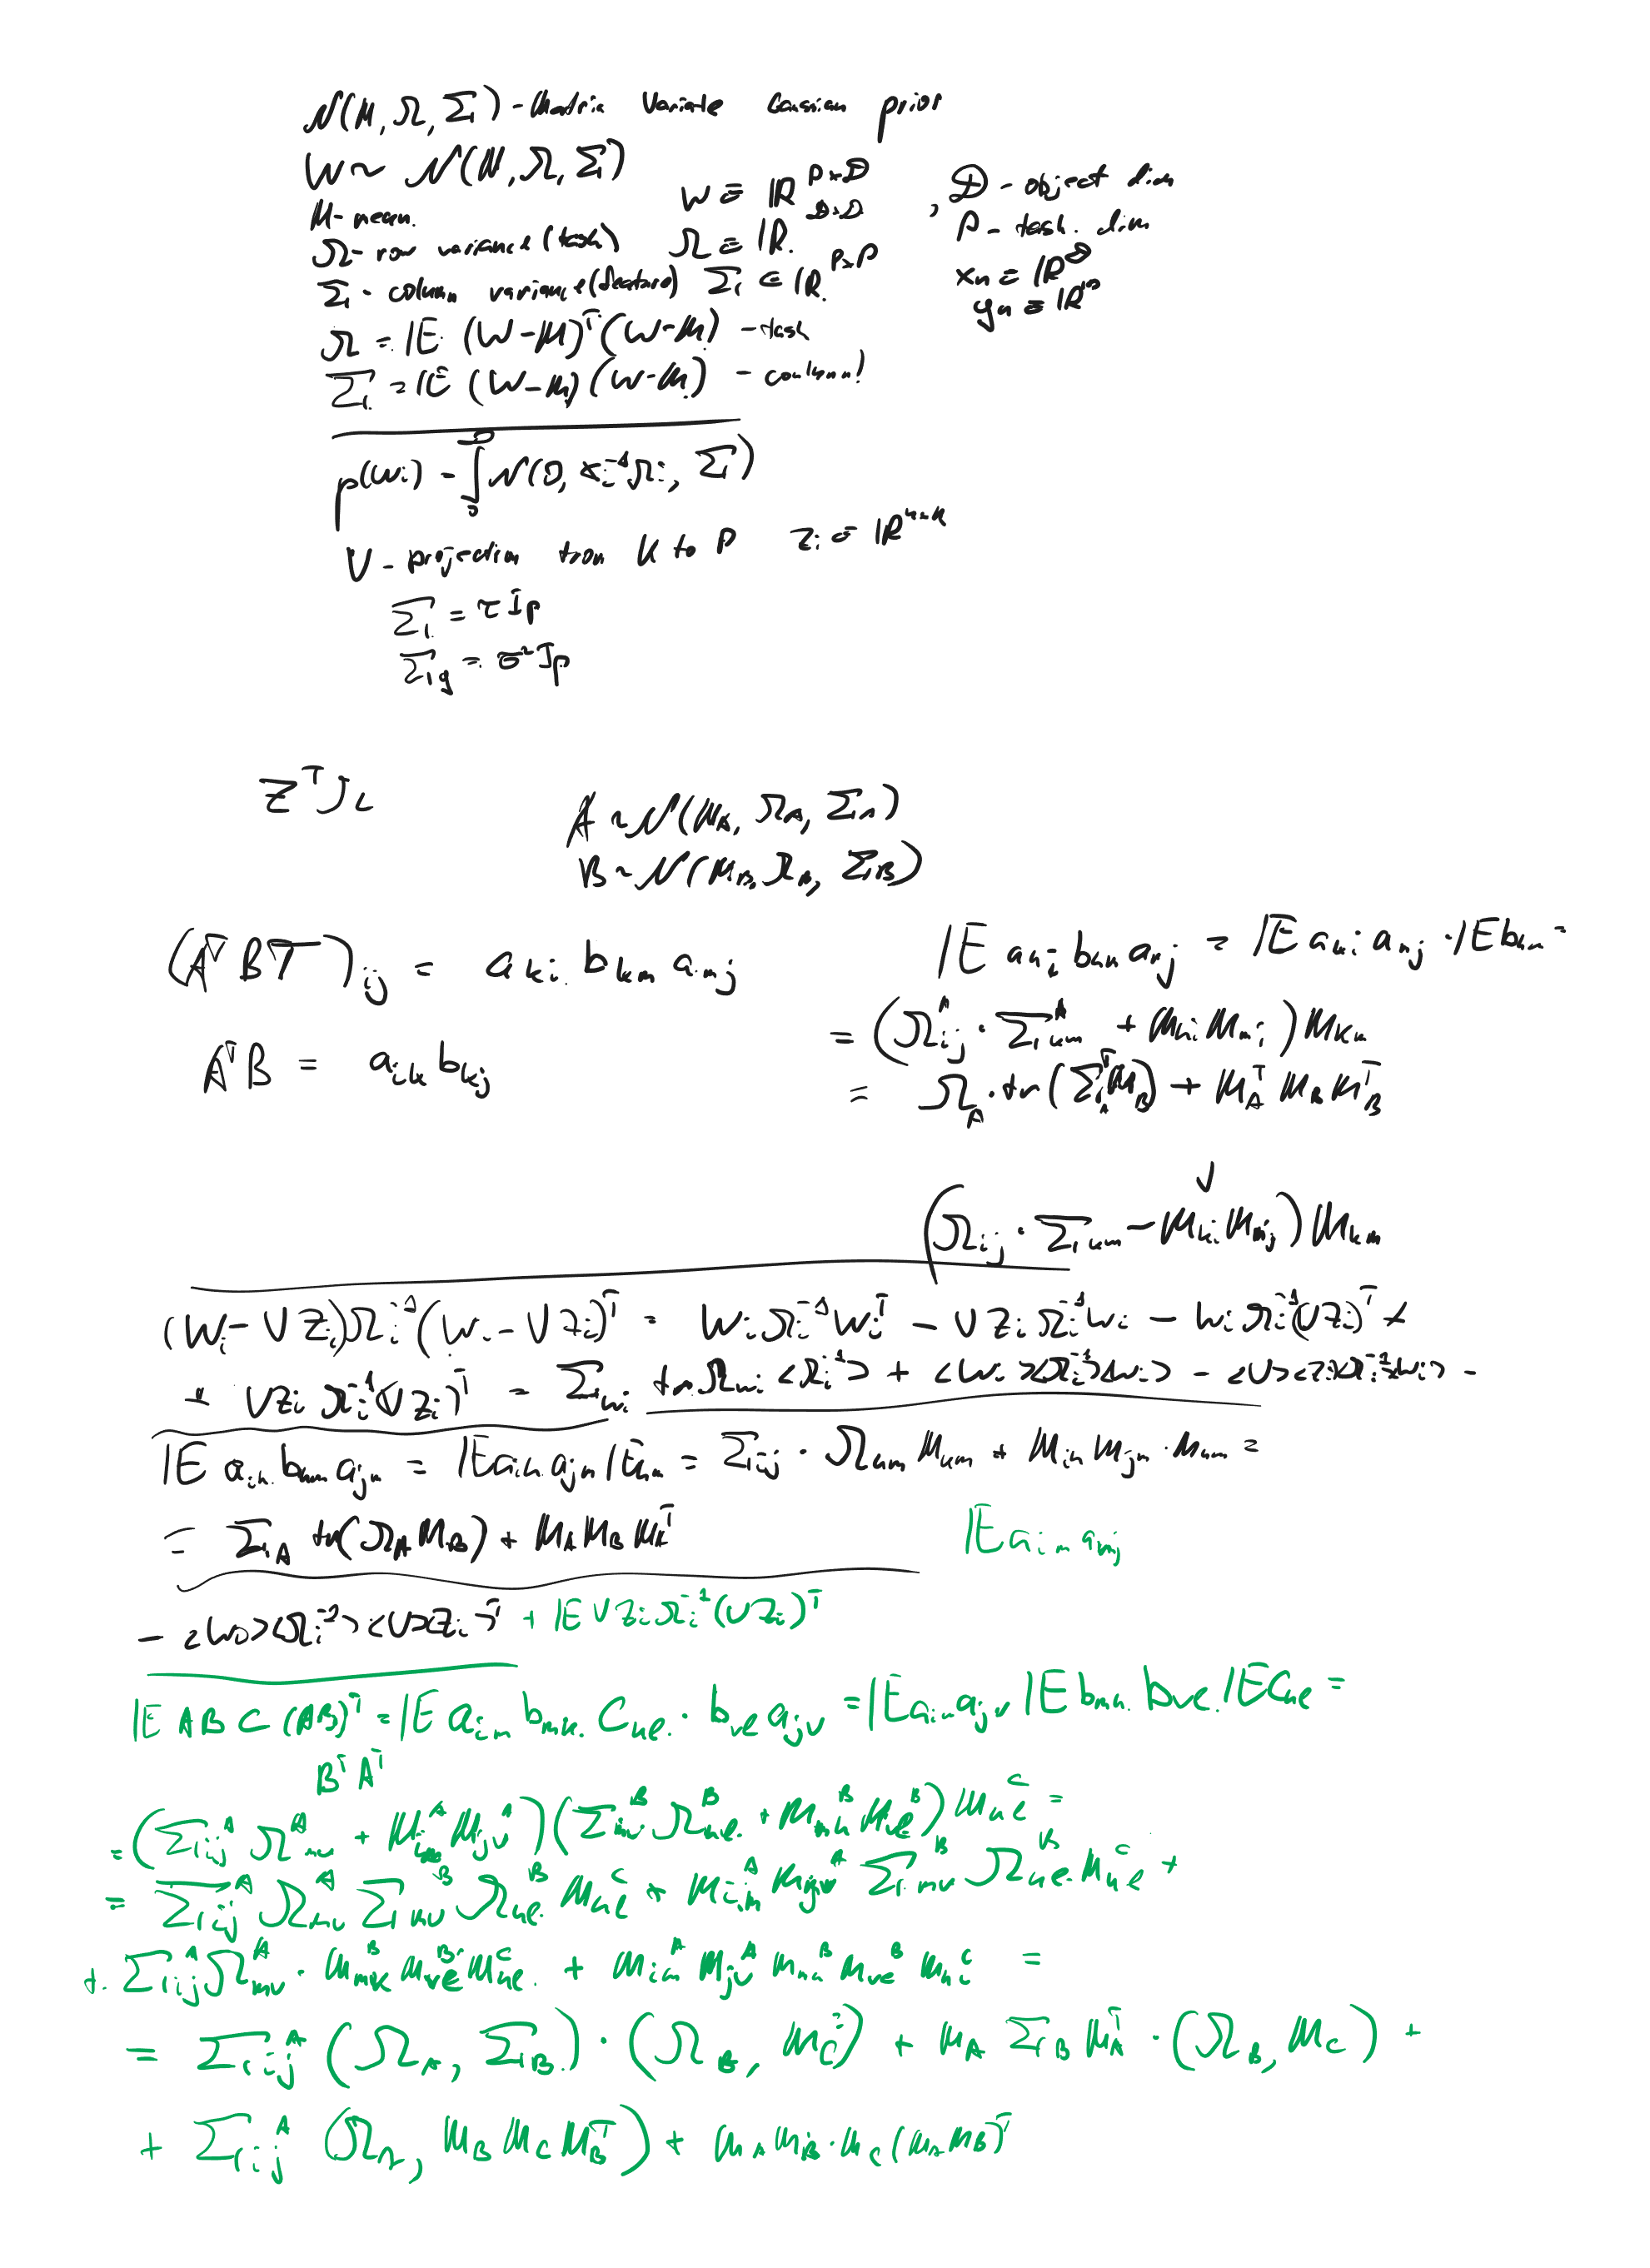 N(M, Ω, Σ) - Matrix Variate Gaussian prior
W ~ N(M, Ω, Σ)
M - mean. W ∈ ℝ^{P×D}, D - object dim
Ω - row variance (task) Ω ∈ ℝ^{D×D} P - task dim
Σ - column variance (feature) Σ ∈ ℝ^{P×P} x_n ∈ ℝ^D
y_n ∈ ℝ^P
Ω = 𝔼 (W-M)^T (W-M) - task
Σ = 𝔼 (W-M) (W-M) - column)
p(w_i) - ∫ N(0, α_i^{-1} Ω_i, Σ)
V - projection from K to P z_i ∈ ℝ
Σ = τ I_p
Σ_y = σ² I_p
Z^T J L
A ~ N(M_A, Ω_A, Σ_A)
B ~ N(M_B, Ω_B, Σ_B)
(A^T B T)_{ij} = a_{ki} b_{km} a_{mj}
𝔼 a_{ki} b_{km} a_{mj} = 𝔼 a_{ki} a_{mj} · 𝔼 b_{km} =
= (Ω^A_{ij} · Σ^A_{km} + M_{ki} M_{mj}) M_{km}
A^T B = a_{ik} b_{kj}
= Ω_A · tr(Σ_A^T M_B) + M_A^T M_B M_B^T
(Ω_{ij} · Σ_{km} - M_{ki} M_{mj}) M_{km}
(W_i - V Z_i) Ω_i^{-1} (W_i - V Z_i)^T = W_i Ω_i^{-1} W_i^T - V Z_i Ω_i^{-1} W_i - W_i Ω_i^{-1} (V Z_i)^T +
+ V Z_i Ω_i^{-1} (V Z_i)^T = Σ_{W_i} tr Ω_{W_i} <Ω_i^{-1}> + <W_i> <Ω_i^{-1}> <W_i> - <V> <Z_i> <Ω_i^{-1}> <W_i> -
𝔼 a_{ik} b_{km} a_{jm} = 𝔼 a_{ik} a_{jm} 𝔼 = Σ_{ij} · Ω_{km} M_{km} + M_{ik} M_{jm} · M_{km} =
= Σ_A tr(Ω_A M_B) + M_A M_B M_A^T
𝔼 a_{im} a_{mj}
- <W_i> <Ω_i^{-1}> <V> <Z_i>^T + 𝔼 V Z_i Ω_i^{-1} (V Z_i)^T
𝔼 A B C (AB)^T = 𝔼 a_{im} b_{mk} C_{ke} · b_{ve} a_{jv} = 𝔼 a_{im} a_{jv} 𝔼 b_{mk} b_{ve} 𝔼 C_{ke} =
B^T A^T
= (Σ^A_{ij} Ω^A_{mv} + M^A_{im} M^A_{jv}) (Σ^B_{mv} Ω^B_{ke} + M^B_{mk} M^B_{ve}) M^C_{ke} =
= Σ^A_{ij} Ω^A_{mv} Σ^B_{mv} Ω^B_{ke} M^C_{ke} + M^A_{im} M^A_{jv} Σ^B_{mv} Ω^B_{ke} M^C_{ke} +
+ Σ^A_{ij} Ω^A_{mv} · M^B_{mk} M^B_{ve} M^C_{ke} + M^A_{im} M^A_{jv} M^B_{mk} M^B_{ve} M^C_{ke} =
= Σ^A_{ij} (Ω_A, Σ_B) · (Ω_B, M_C) + M_A Σ_B M_A^T · (Ω_B, M_C) +
+ Σ^A_{ij} (Ω_A, M_B M_C M_B^T) + M_A M_B · M_C (M_A M_B)^T